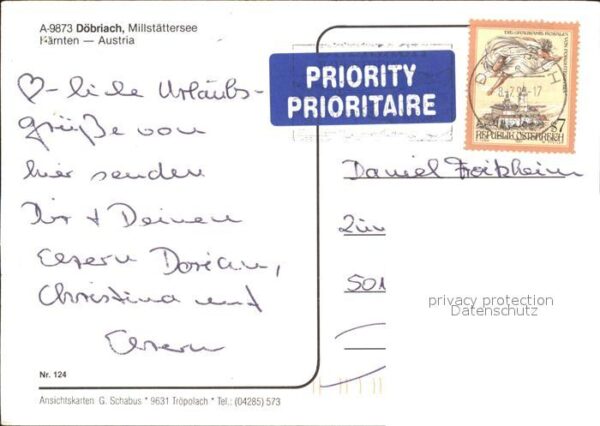 A-9873 Döbriach, Millstättersee
Kärnten — Austria
♡-liche Urlaubs-
grüße von
hier senden
Dir + Deinen
Eltern Dorian,
Christina und
Eltern
Nr. 124
Ansichtskarten G. Schabus * 9631 Tröpolach * Tel.: (04285) 573
PRIORITY
PRIORITAIRE
S7
REPUBLIK ÖSTERREICH
Daniel
501
privacy protection
Datenschutz